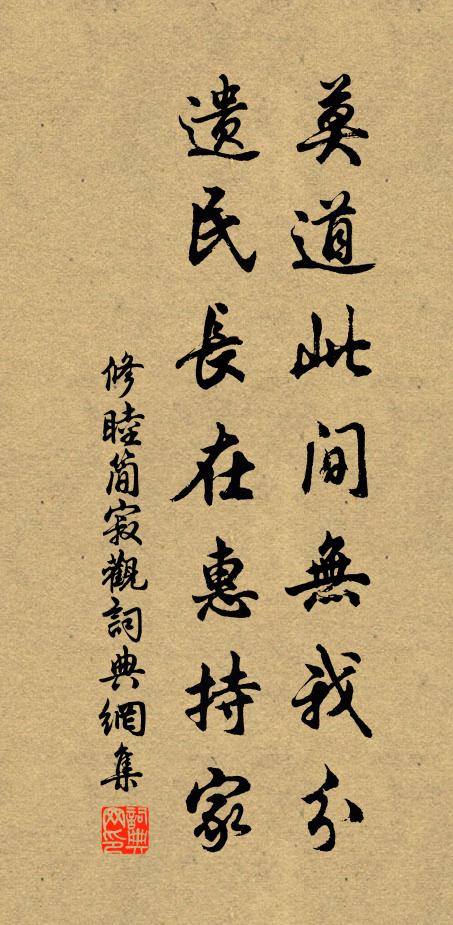 莫道此間無我分
遺民長在惠持家
修睦簡寂觀詞典網集
詞典網印